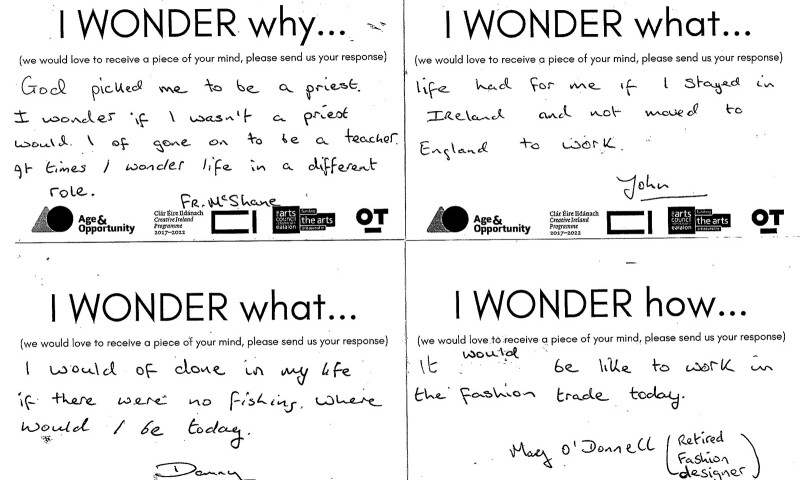 I WONDER why...
(we would love to receive a piece of your mind, please send us your response)
God picked me to be a priest.
I wonder if I wasn't a priest
would I of gone on to be a teacher.
At times I wonder life in a different
role.
FR. McShane
Age &
Opportunity
Clár Éire Ildánach
Creative Ireland
Programme
2017–2022
arts
council
ealaíon
funding
the arts
OT
I WONDER what...
(we would love to receive a piece of your mind, please send us your response)
life had for me if I stayed in
IReland and not moved to
England to work.
John
Age &
Opportunity
Clár Éire Ildánach
Creative Ireland
Programme
2017–2022
arts
council
ealaíon
funding
the arts
OT
I WONDER what...
(we would love to receive a piece of your mind, please send us your response)
I would of done in my life
if there were no fishing. where
would I be today.
Danny
I WONDER how...
(we would love to receive a piece of your mind, please send us your response)
It would be like to work in
the fashion trade today.
Mary O'Donnell (Retired
Fashion
designer)